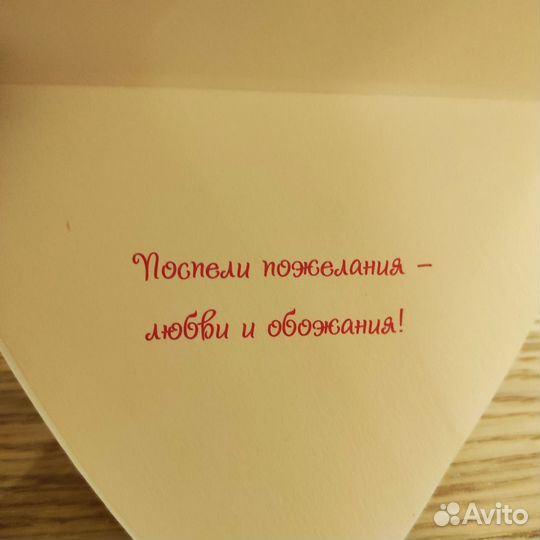 Поспели пожелания –
любви и обожания!
Avito